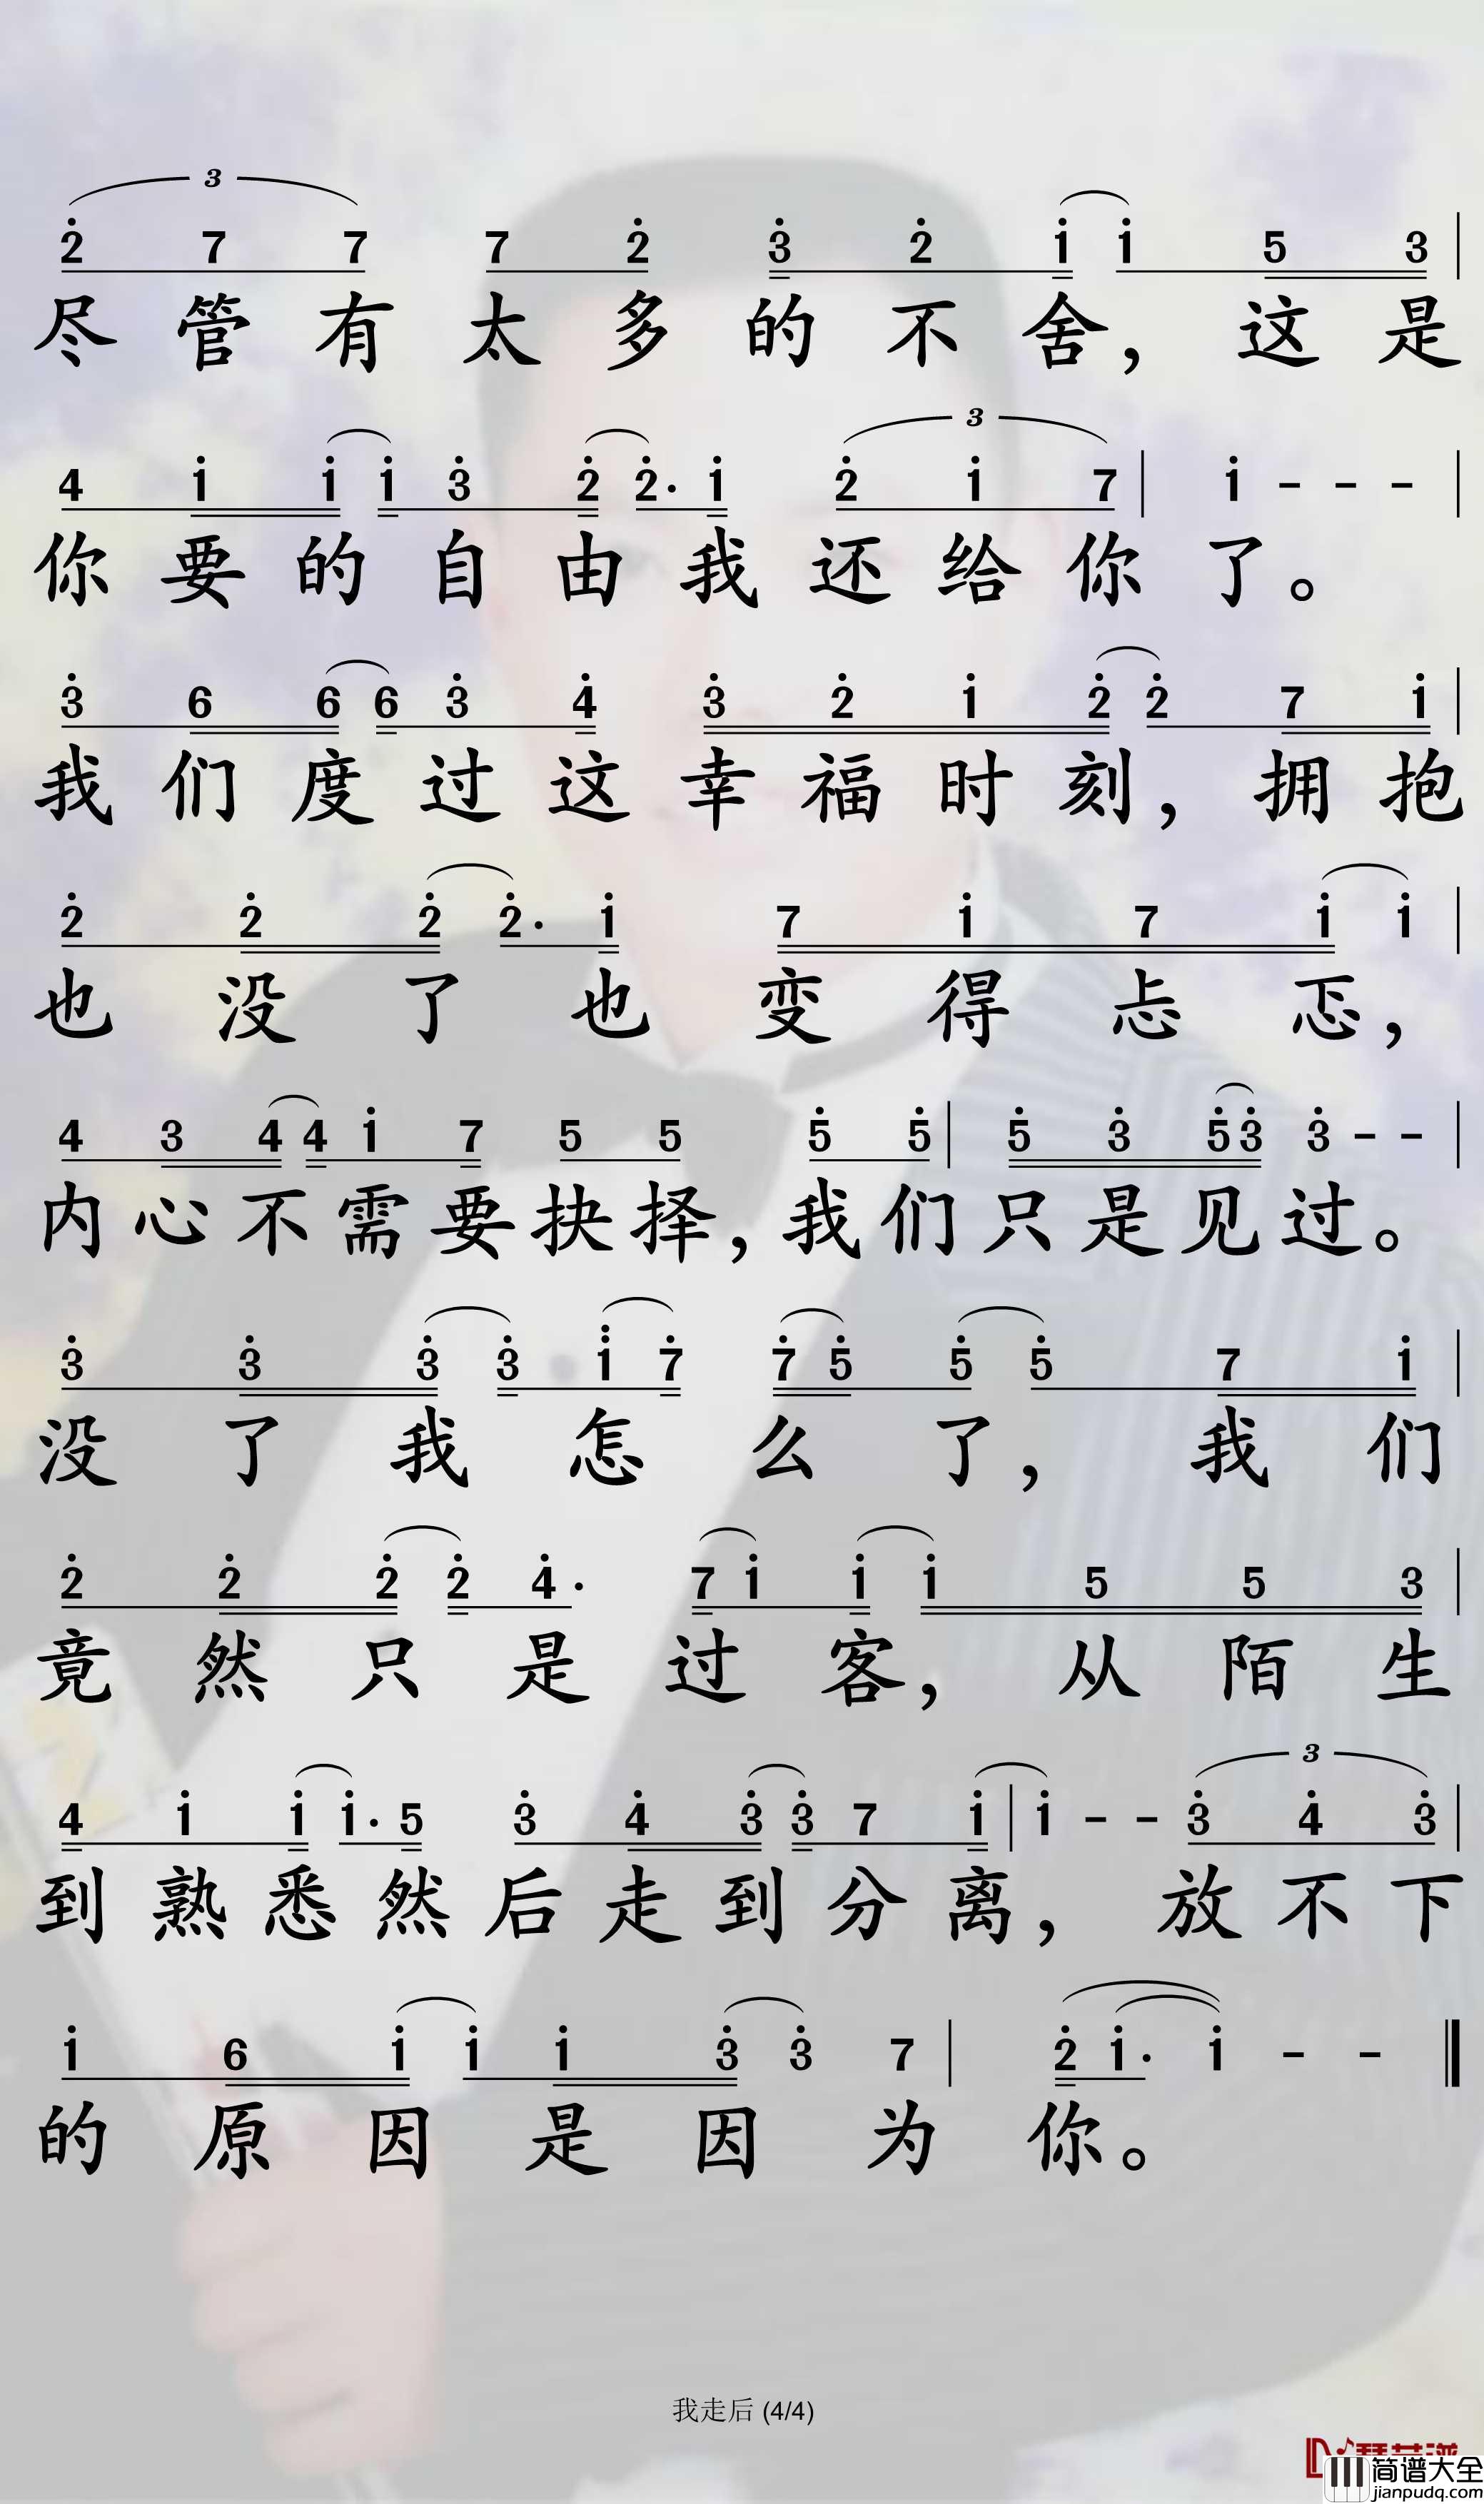 3
2 7 7 7 2 3 2 1 1 5 3
尽管有太多的不舍，这是
3
4 1 1 1 3 2 2. 1 2 1 7 | 1 - - -
你要的自由我还给你了。
3 6 6 6 3 4 3 2 1 2 2 7 1
我们度过这幸福时刻，拥抱
2 2 2 2. 1 7 1 7 1 1
也没了也变得忐忑，
4 3 4 4 1 7 5 5 5 5 | 5 3 5 3 3 - -
内心不需要抉择，我们只是见过。
3 3 3 3 1 7 7 5 5 5 7 1
没了我怎么了，我们
2 2 2 2 4. 7 1 1 1 5 5 3
竟然只是过客，从陌生
3
4 1 1 1. 5 3 4 3 3 7 1 | 1 - - 3 4 3
到熟悉然后走到分离，放不下
1 6 1 1 1 3 3 7 | 2 1. 1 - -
的原因是因为你。
我走后 (4/4)
简谱大全
jianpudq.com